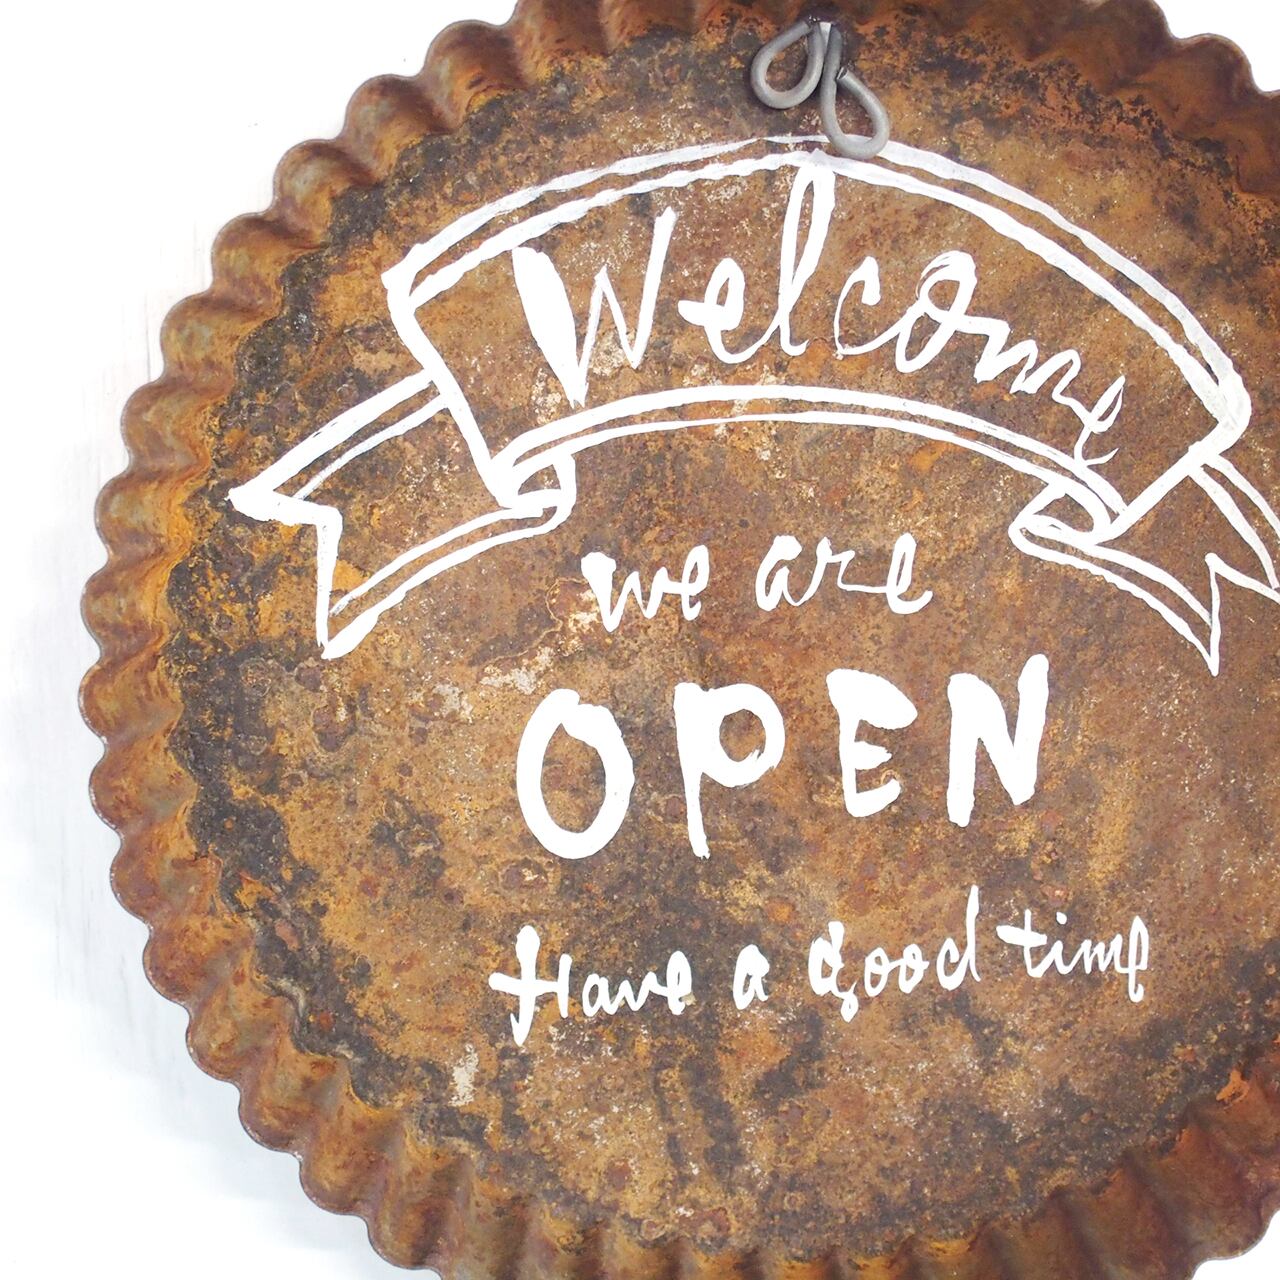 Welcome
we are
OPEN
Have a good time